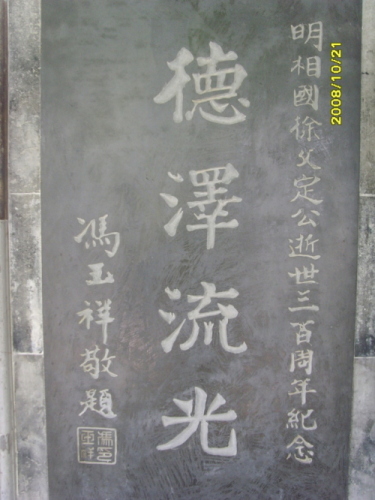 明相國徐文定公逝世三百周年紀念
德澤流光
馮玉祥敬題
馮玉祥印
2008/10/21